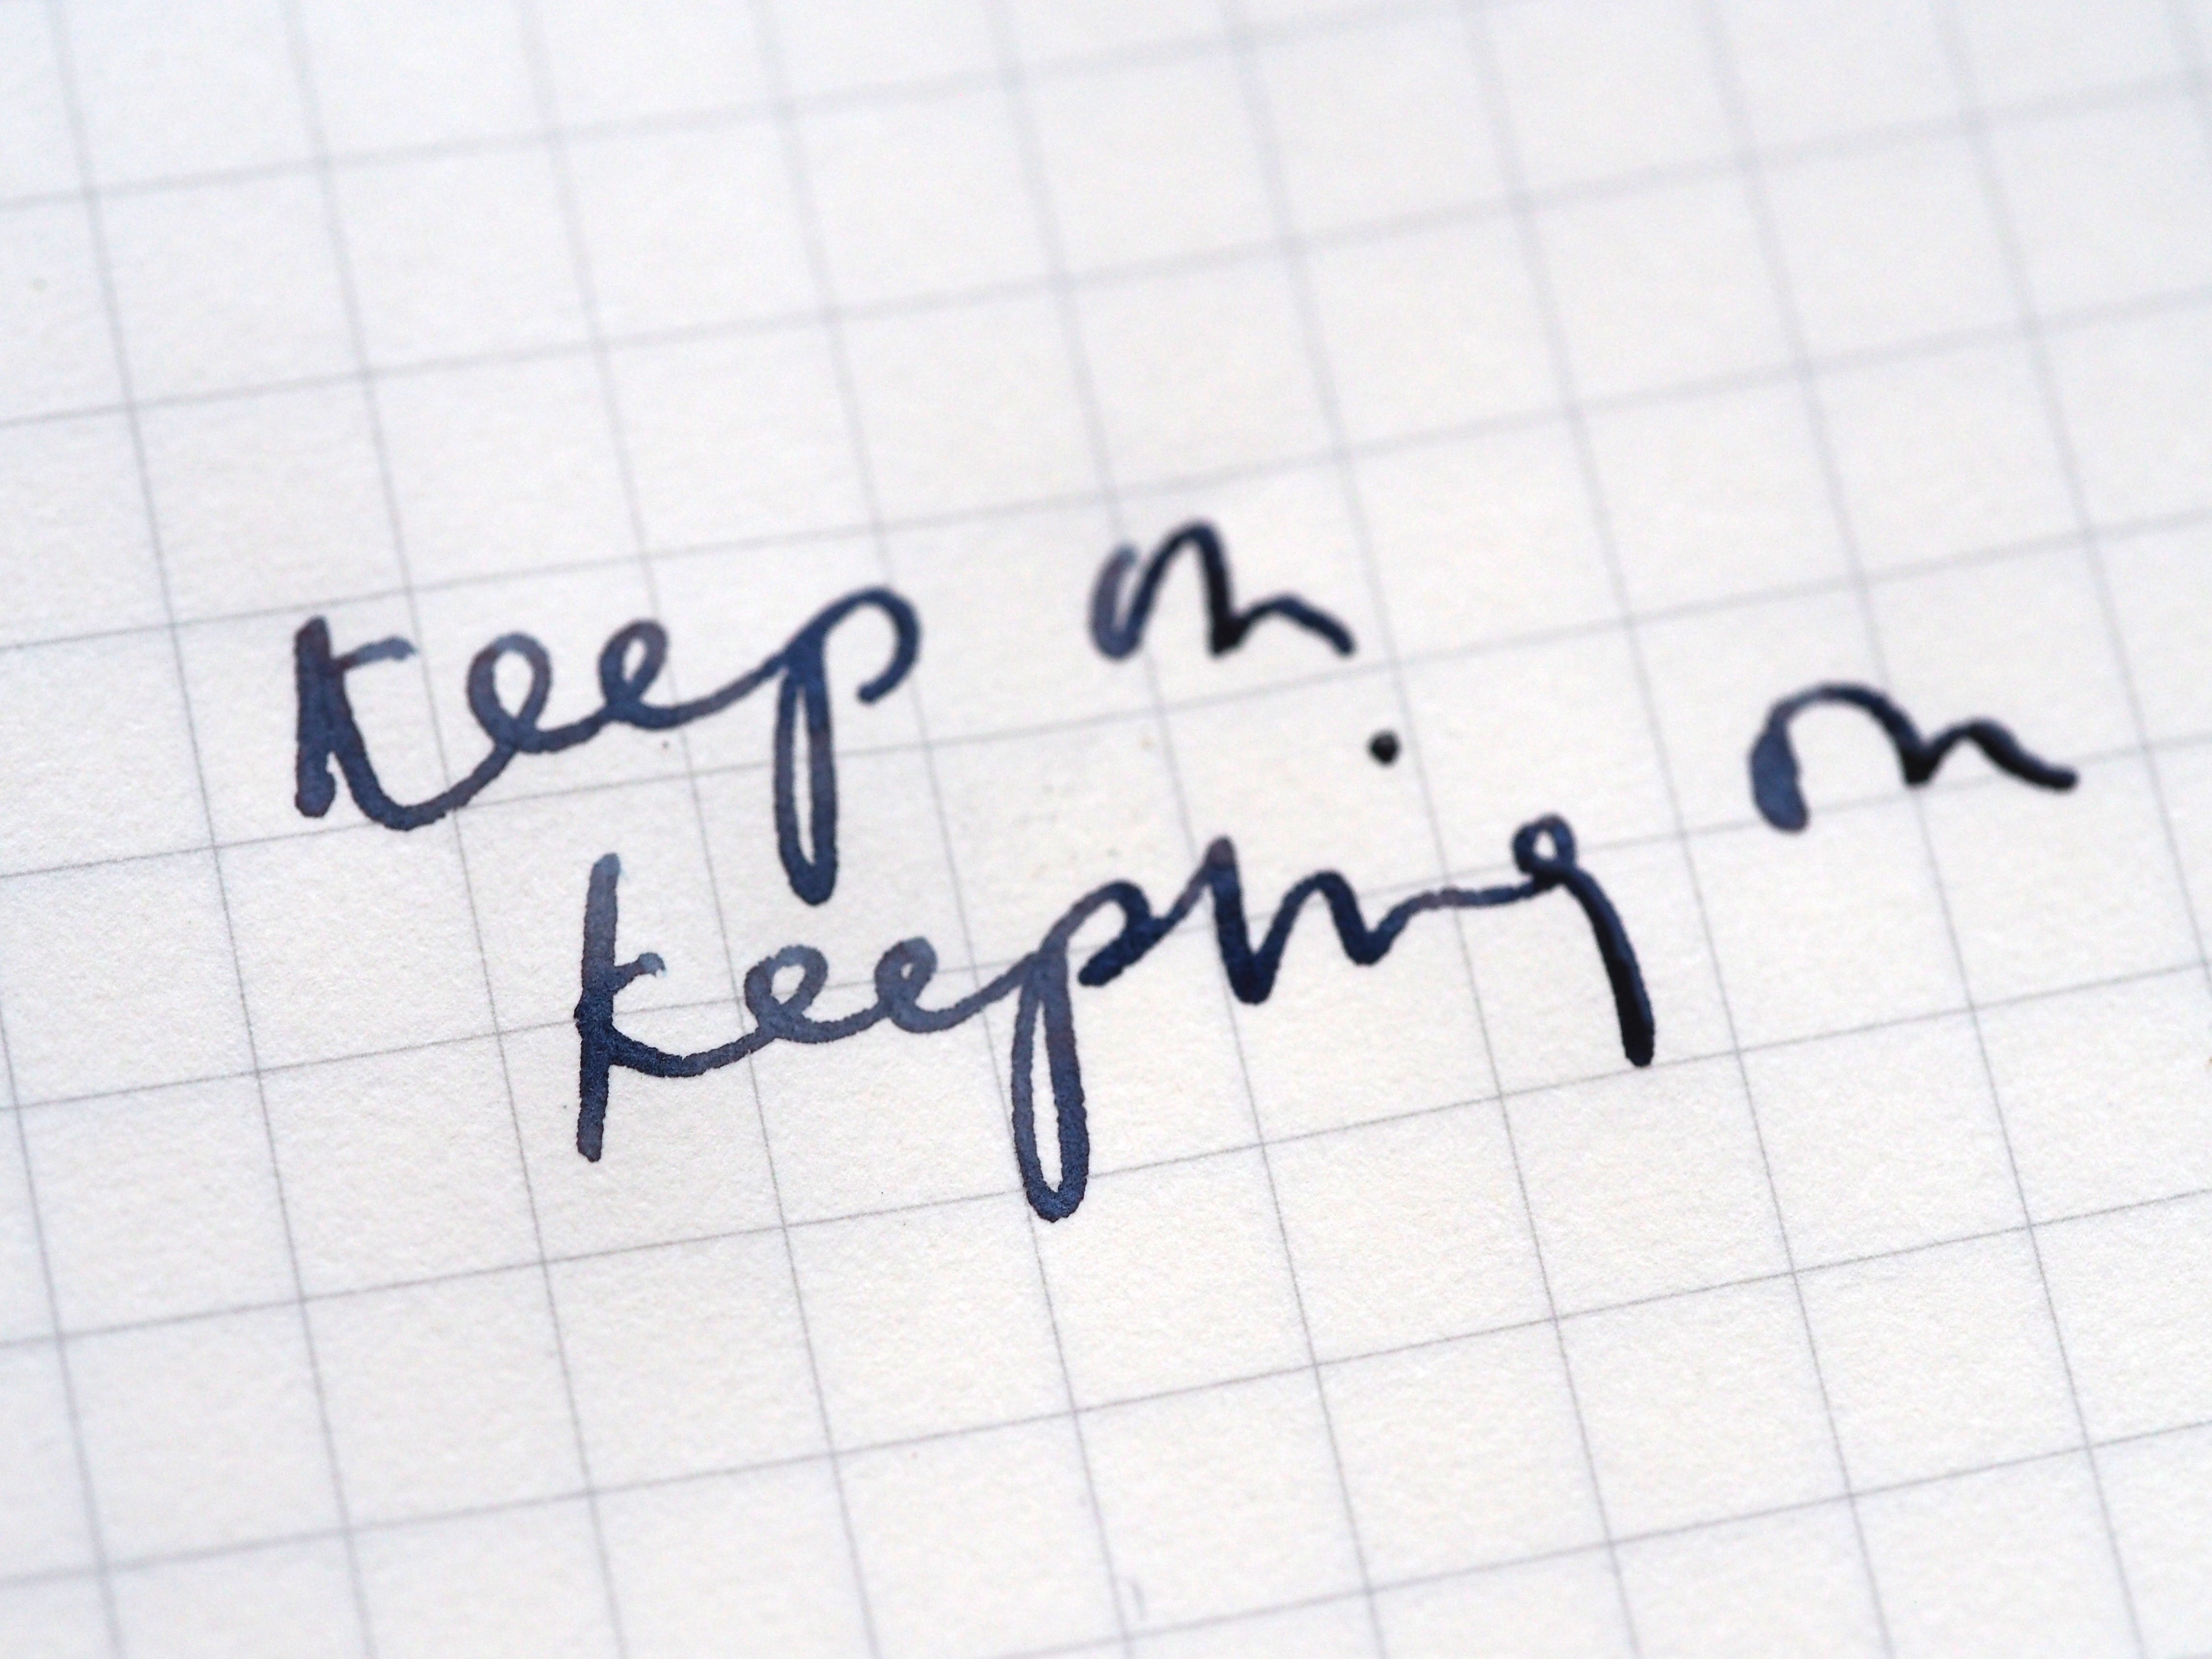 keep on
keeping on